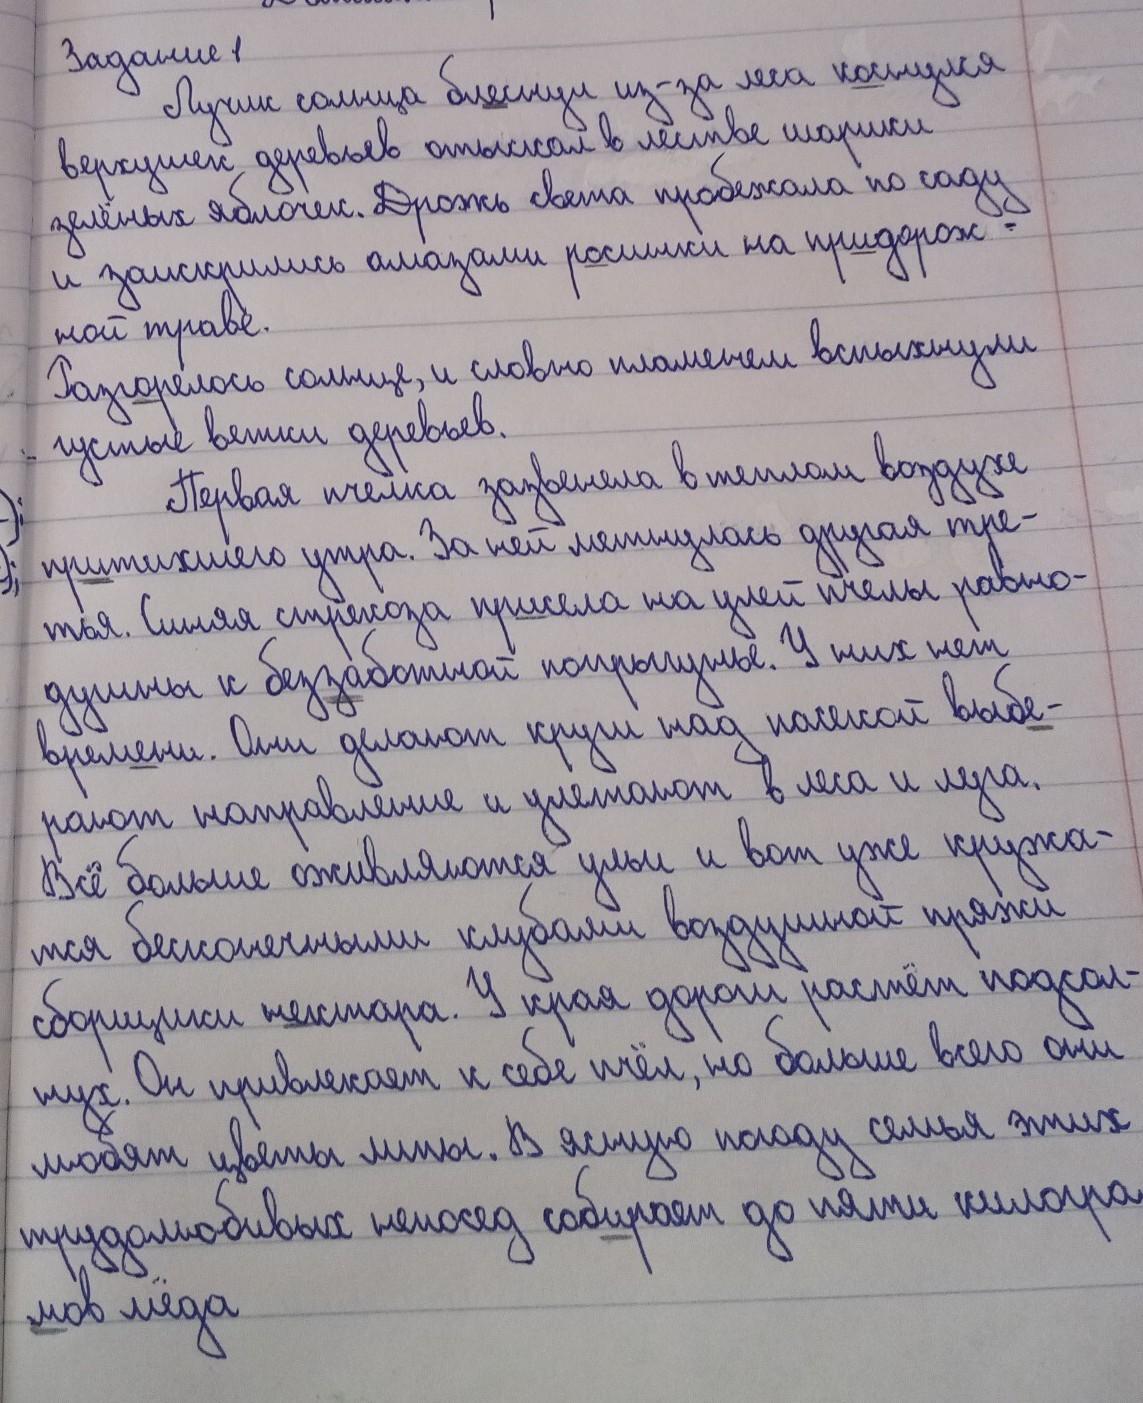 Задание 1
Лучик солнца блеснул из-за леса коснулся
верхушек деревьев отыскал в листве шарики
зелёных яблочек. Дрожь света пробежала по саду
и заискрились алмазами росинки на придорож-
ной траве.
Разгорелось солнце, и словно пламенем вспыхнули
густые ветки деревьев.
Первая пчелка зазвенела в теплом воздухе
притихшего утра. За ней метнулась другая тре-
тья. Синяя стрекоза присела на улей пчелы равно-
душны к беззаботной попрыгунье. У них нет
времени. Они делают круги над пасекой выбе-
рают направление и улетают в леса и луга.
Всё больше оживляются ульи и вот уже кружа-
тся бесконечными клубами воздушной пряжи
сборщики нектара. У края дороги растёт подсол-
нух. Он привлекает к себе пчёл, но больше всего они
любят цветы липы. В ясную погоду семья этих
трудолюбивых непосед собирает до пяти килогра
мов мёда